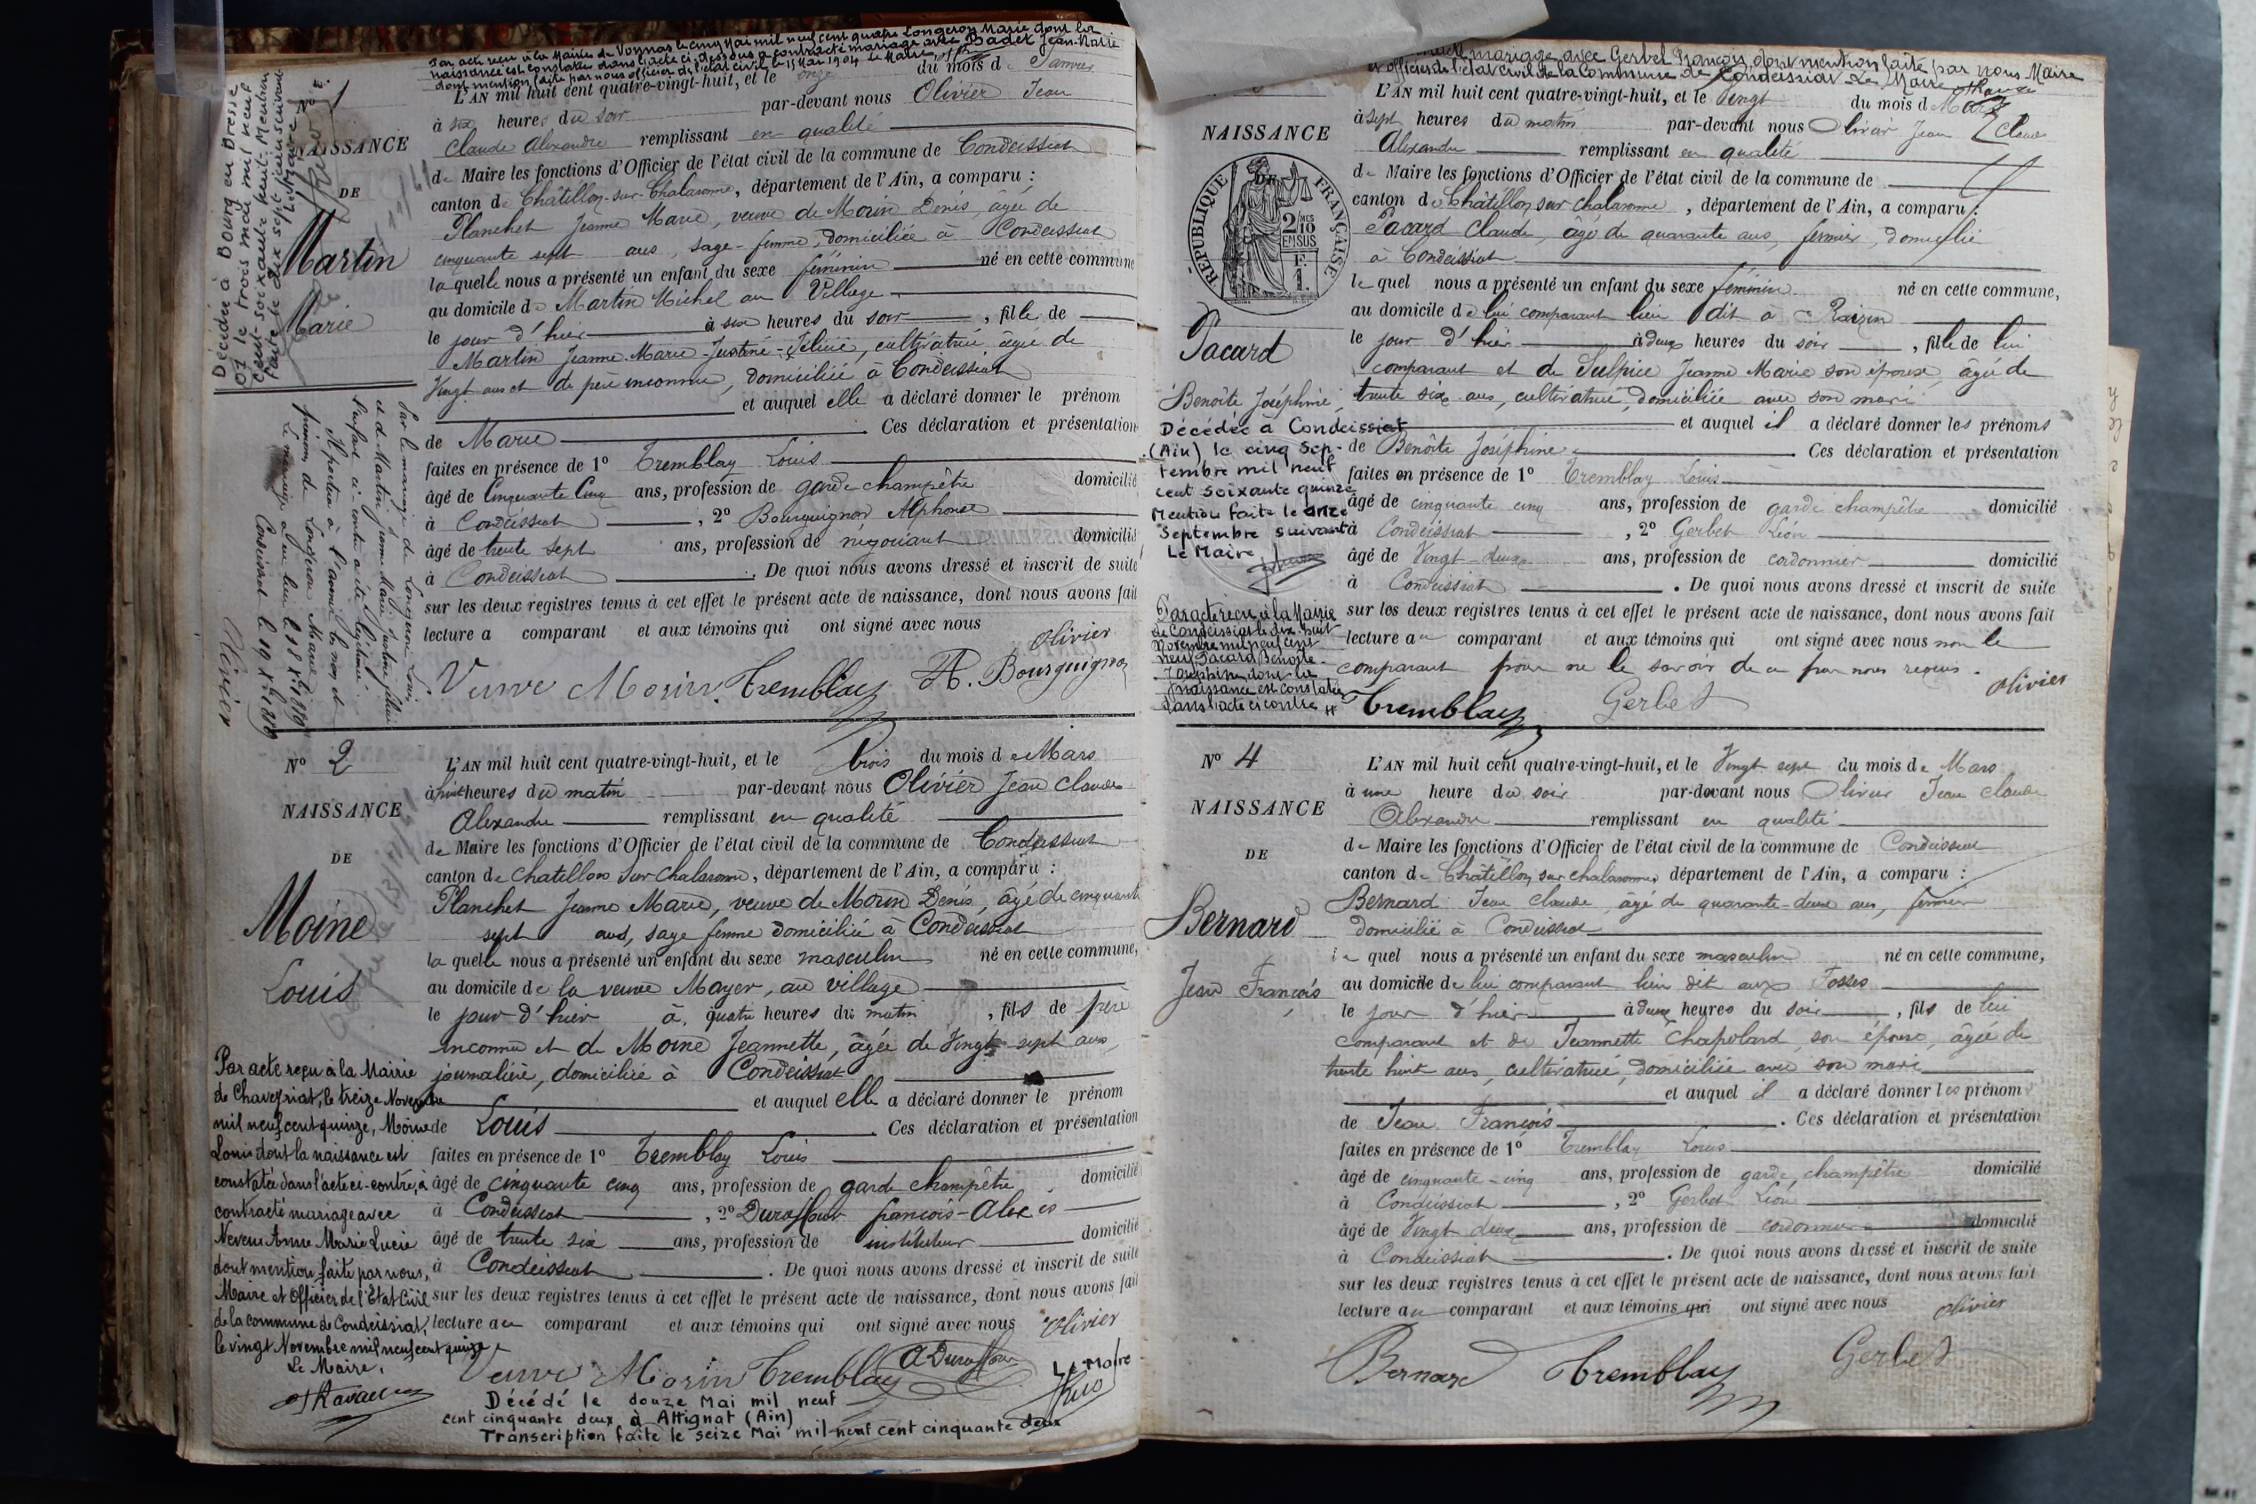 Par acte reçu à la Mairie de Vonnas le cinq Mai mil neuf cent quatre Longeron Marie dont la
naissance est constatée dans l'acte ci-dessous a contracté mariage avec Badet Jean-Marie
dont mention faite par nous officier de l'état civil le 15 Mai 1904 Le Maire
N° 1
NAISSANCE
DE
Martin
Marie
Décédée à Bourg en Bresse
01 le trois mai mil neuf
cent soixante huit. Mention
faite le dix sept juin suivant
L'AN mil huit cent quatre-vingt-huit, et le onze du mois de Janvier
à six heures du soir par-devant nous Olivier Jean
Claude Alexandre remplissant en qualité
de Maire les fonctions d'Officier de l'état civil de la commune de Condeissiat
canton de Châtillon-sur-Chalaronne, département de l'Ain, a comparu :
Planchet Jeanne Marie, veuve de Morin Denis, âgée de
cinquante sept ans, sage-femme, domiciliée à Condeissiat
laquelle nous a présenté un enfant du sexe féminin né en cette commune
au domicile de Martin Michel au Village
le jour d'hier à six heures du soir, fille de
Martin Jeanne-Marie-Justine-Félicie, cultivatrice âgée de
Vingt ans et de père inconnu, domiciliée à Condeissiat
et auquel elle a déclaré donner le prénom
de Marie Ces déclaration et présentation
faites en présence de 1° Tremblay Louis
âgé de Cinquante Cinq ans, profession de garde champêtre domicilié
à Condeissiat, 2° Bourguignon Alphonse
âgé de trente sept ans, profession de négociant domicilié
à Condeissiat. De quoi nous avons dressé et inscrit de suite
sur les deux registres tenus à cet effet le présent acte de naissance, dont nous avons fait
lecture a comparant et aux témoins qui ont signé avec nous
Olivier
Veuve Morin Tremblay A. Bourguignon
Par le mariage de Longeron Louis
et de Martin Jeanne Marie Justine Félicie
l'enfant ci-contre a été légitimé.
Il portera à l'avenir le nom et
prénom de Longeron Marie
Le mariage a eu lieu le
Condeissiat le
Olivier
N° 2
NAISSANCE
DE
Moine
Louis
L'AN mil huit cent quatre-vingt-huit, et le trois du mois de Mars
à huit heures du matin par-devant nous Olivier Jean Claude
Alexandre remplissant en qualité
de Maire les fonctions d'Officier de l'état civil de la commune de Condeissiat
canton de Chatillon sur Chalaronne, département de l'Ain, a comparu :
Planchet Jeanne Marie, veuve de Morin Denis, âgé de cinquante
sept ans, sage femme domiciliée à Condeissiat
laquelle nous a présenté un enfant du sexe masculin né en cette commune,
au domicile de la veuve Mayer, au village
le jour d'hier à quatre heures du matin, fils de père
inconnu et de Moine Jeannette, âgée de Vingt sept ans,
journalière, domiciliée à Condeissiat
et auquel elle a déclaré donner le prénom
de Louis Ces déclaration et présentation
faites en présence de 1° Tremblay Louis
âgé de cinquante cinq ans, profession de garde champêtre domicilié
à Condeissiat, 2° Duraffour françois-Alexis
âgé de trente six ans, profession de instituteur domicilié
à Condeissiat. De quoi nous avons dressé et inscrit de suite
sur les deux registres tenus à cet effet le présent acte de naissance, dont nous avons fait
lecture au comparant et aux témoins qui ont signé avec nous Olivier
Veuve Morin Tremblay A Duraffour
Le Maire
Décédé le douze Mai mil neuf
cent cinquante deux à Attignat (Ain)
Transcription faite le seize Mai mil neuf cent cinquante deux
Par acte reçu à la Mairie
de Chaveyriat, le treize Novembre
mil neuf cent quinze, Moine
Louis dont la naissance est
constatée dans l'acte ci-contre, a
contracté mariage avec
Neveu Anne Marie Lucie
dont mention faite par nous,
Maire et Officier de l'Etat Civil
de la commune de Condeissiat,
le vingt Novembre mil neuf cent quinze
Le Maire,
mariage avec Gerbet François, dont mention faite par nous Maire
et officier de l'état civil de la commune de Condeissiat Le Maire
NAISSANCE
DE
RÉPUBLIQUE FRANÇAISE
2/10 EN SUS
F. 1.
Pacard
Benoîte Joséphine
L'AN mil huit cent quatre-vingt-huit, et le Vingt du mois de Mars
à sept heures du matin par-devant nous Olivier Jean Claude
Alexandre remplissant en qualité
de Maire les fonctions d'Officier de l'état civil de la commune de
canton de Châtillon sur Chalaronne, département de l'Ain, a comparu :
Pacard Claude, âgé de quarante ans, fermier, domicilié
à Condeissiat
lequel nous a présenté un enfant du sexe féminin né en cette commune,
au domicile de lui comparant lieu dit
le jour d'hier à deux heures du soir, fille de lui
comparant et de Sulpice Jeanne Marie son épouse, âgée de
trente six ans, cultivatrice, domiciliée avec son mari
et auquel il a déclaré donner les prénoms
de Benoîte Joséphine Ces déclaration et présentation
faites en présence de 1° Tremblay Louis
âgé de cinquante cinq ans, profession de garde champêtre domicilié
à Condeissiat, 2° Gerbet Léon
âgé de Vingt deux ans, profession de cordonnier domicilié
à Condeissiat. De quoi nous avons dressé et inscrit de suite
sur les deux registres tenus à cet effet le présent acte de naissance, dont nous avons fait
lecture au comparant et aux témoins qui ont signé avec nous non le
comparant pour ne le savoir de ce par nous requis.
Olivier
Tremblay Gerbet
Décédée à Condeissiat
(Ain) le cinq Sep-
tembre mil neuf
cent soixante quinze
Mention faite le onze
Septembre suivant
Le Maire
Par acte reçu à la Mairie
de Condeissiat le dix-huit
Novembre mil neuf cent
neuf Pacard Benoîte-
Joséphine dont la
naissance est constatée
dans l'acte ci contre #
N° 4
NAISSANCE
DE
Bernard
Jean François
L'AN mil huit cent quatre-vingt-huit, et le Vingt sept du mois de Mars
à une heure du soir par-devant nous Olivier Jean Claude
Alexandre remplissant en qualité
de Maire les fonctions d'Officier de l'état civil de la commune de Condeissiat
canton de Châtillon sur Chalaronne, département de l'Ain, a comparu :
Bernard Jean Claude, âgé de quarante-deux ans, fermier
domicilié à Condeissiat
lequel nous a présenté un enfant du sexe masculin né en cette commune,
au domicile de lui comparant lieu dit aux Fosses
le jour d'hier à deux heures du soir, fils de lui
comparant et de Jeannette Chapolard, son épouse, âgée de
trente huit ans, cultivatrice, domiciliée avec son mari
et auquel il a déclaré donner les prénom
de Jean François. Ces déclaration et présentation
faites en présence de 1° Tremblay Louis
âgé de cinquante-cinq ans, profession de garde champêtre domicilié
à Condeissiat, 2° Gerbet Léon
âgé de Vingt deux ans, profession de cordonnier domicilié
à Condeissiat. De quoi nous avons dressé et inscrit de suite
sur les deux registres tenus à cet effet le présent acte de naissance, dont nous avons fait
lecture au comparant et aux témoins qui ont signé avec nous Olivier
Bernard Tremblay Gerbet